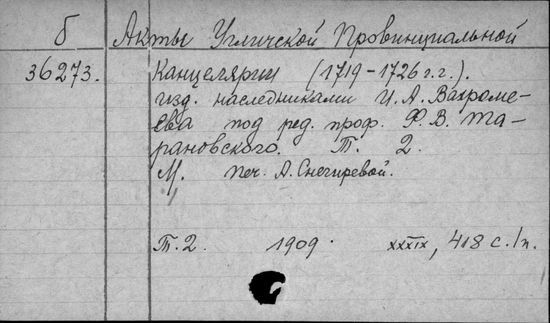 б Акты Угличской Провинциальной
36273. Канцелярии (1719-1726 г.г.).
изд. наследниками И. А. Вахроме-
ева под ред. проф. Ф. В. Та-
рановского. Т. 2.
М. печ. А. Снегиревой.
Т. 2. 1909. XXXIX, 418 с. 1 п.